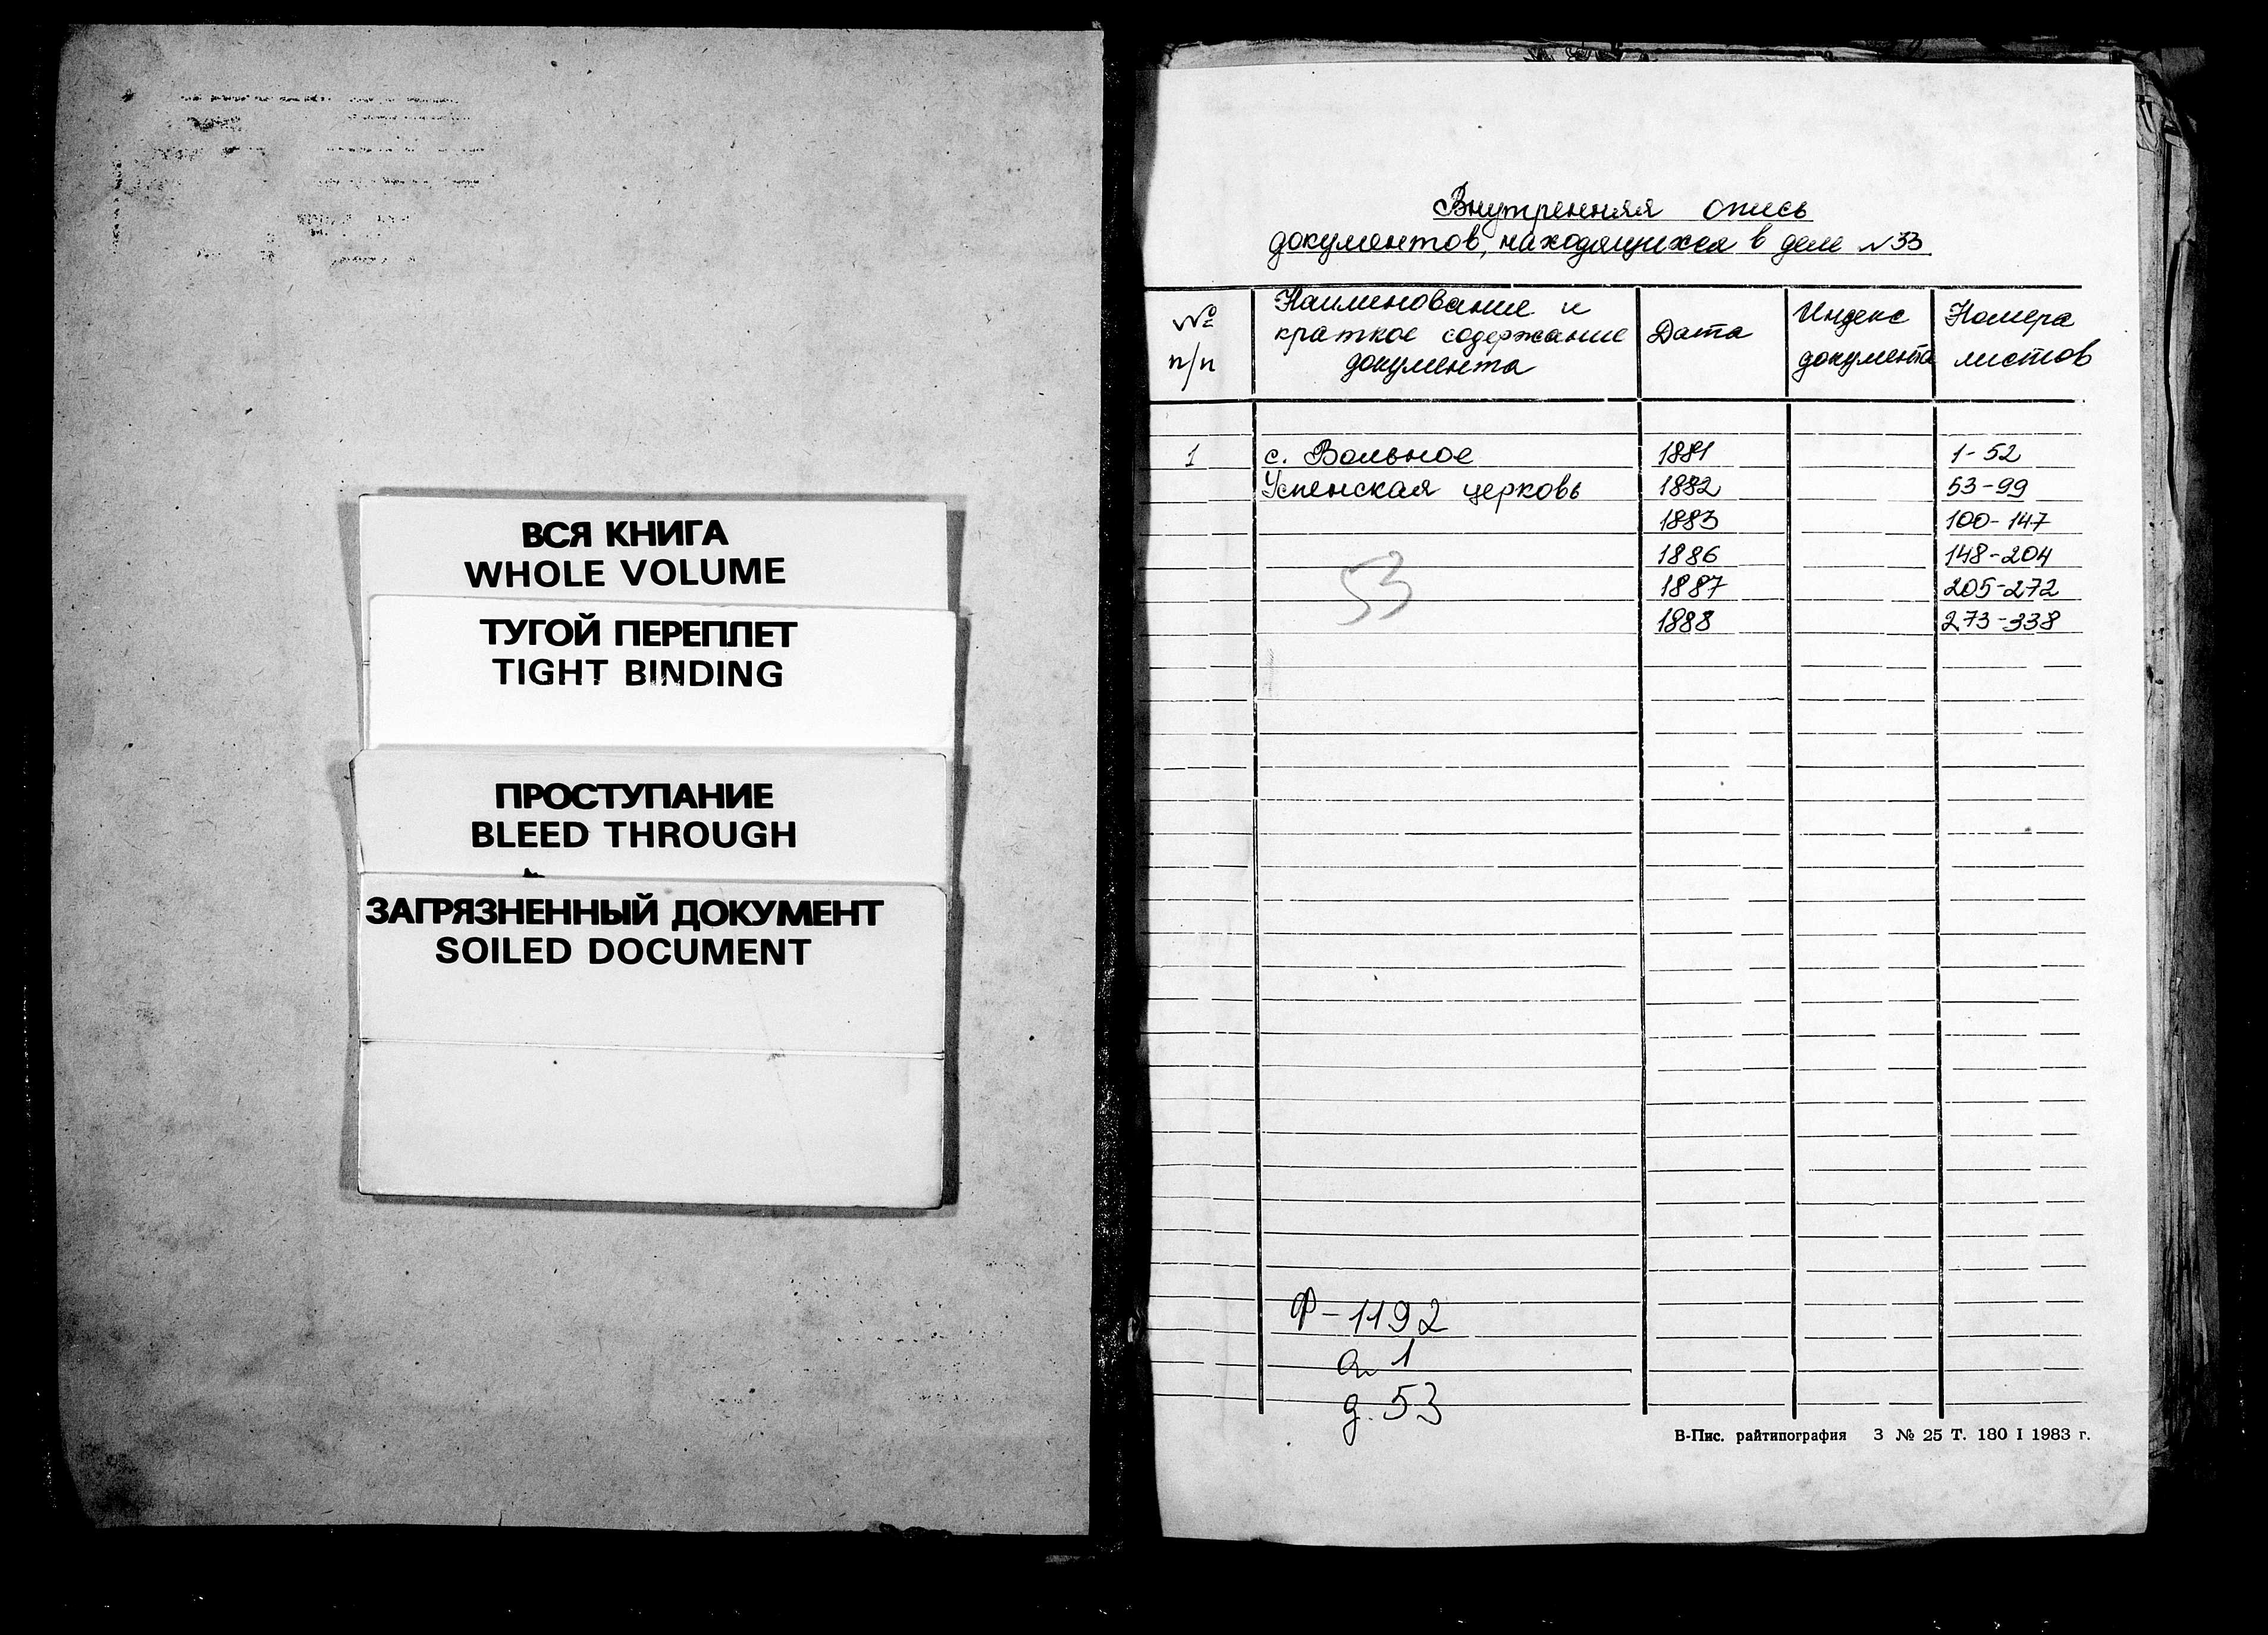 ВСЯ КНИГА
WHOLE VOLUME
ТУГОЙ ПЕРЕПЛЕТ
TIGHT BINDING
ПРОСТУПАНИЕ
BLEED THROUGH
ЗАГРЯЗНЕННЫЙ ДОКУМЕНТ
SOILED DOCUMENT
Внутренняя опись
документов, находящихся в деле №33
№ п/п Наименование и краткое содержание документа Дата Индекс документа Номера листов
1 с. Вольное 1881 1-52
Успенская церковь 1882 53-99
1883 100-147
1886 148-204
53
1887 205-272
1888 273-338
Ф-1192
оп 1
д. 53
В-Пис. райтипография З № 25 Т. 180 I 1983 г.